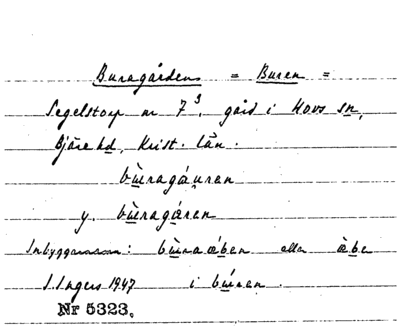 Buragården = Buren =
Segelstorp nr 7³, gård i Hovs sn,
Bjäre hd, Krist. län.
bùragáuren
y. bùragåren
Inbyggarnamn: bùraåben eller åbe
I. Ingers 1947 i búren.
Nr 5323.